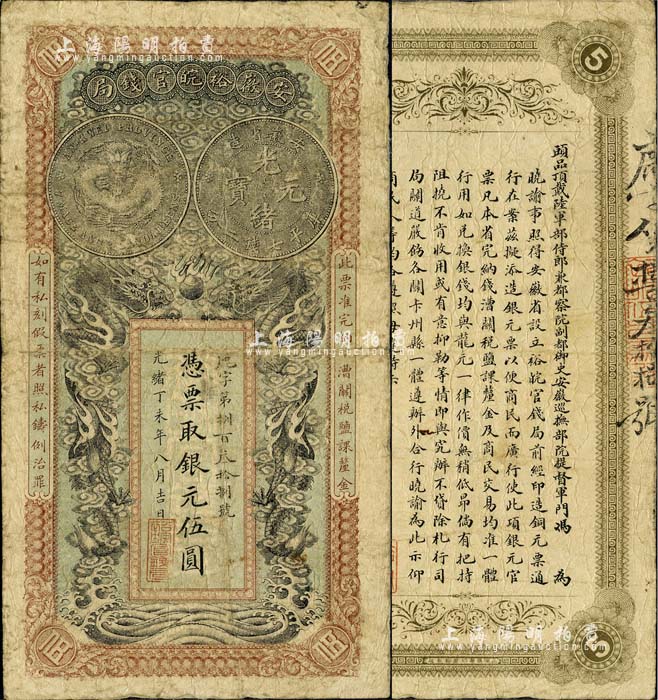 上海陽明拍賣
www.yangmingauction.com
安徽裕皖官錢局
光緒元寶
此票准完
漕關稅鹽課釐金
如有私刻假票者照私鑄例治罪
字第捌百貳拾捌號
憑票取銀元伍圓
光緒丁未年八月吉日
上海陽明拍賣
www.yangmingauction.com
5
頭品頂戴陸軍部侍郎兼都察院副都御史安徽巡撫部院提督軍門馮 為
曉諭事照得安徽省設立裕皖官錢局前經印造銅元票通
行在案茲擬添造銀元票以便商民而廣行使此項銀元官
票凡本省完納錢漕關稅鹽課釐金及商民交易均准一體
行用如兌換銀錢均與龍元一律作價無稍低昻倘有把持
阻撓不肯收用或有意抑勒等情即與究辦不貸除札行司
局關道嚴飭各關卡州縣一體遵辦外合行曉諭為此示仰
5
上海陽明拍賣
www.yangmingauction.com